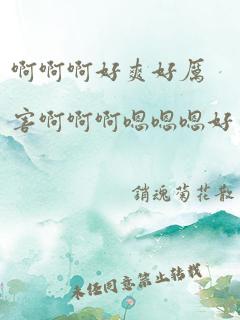 啊啊啊好爽好厉
害啊啊啊嗯嗯嗯好
銷魂菊花散
未经同意禁止转载